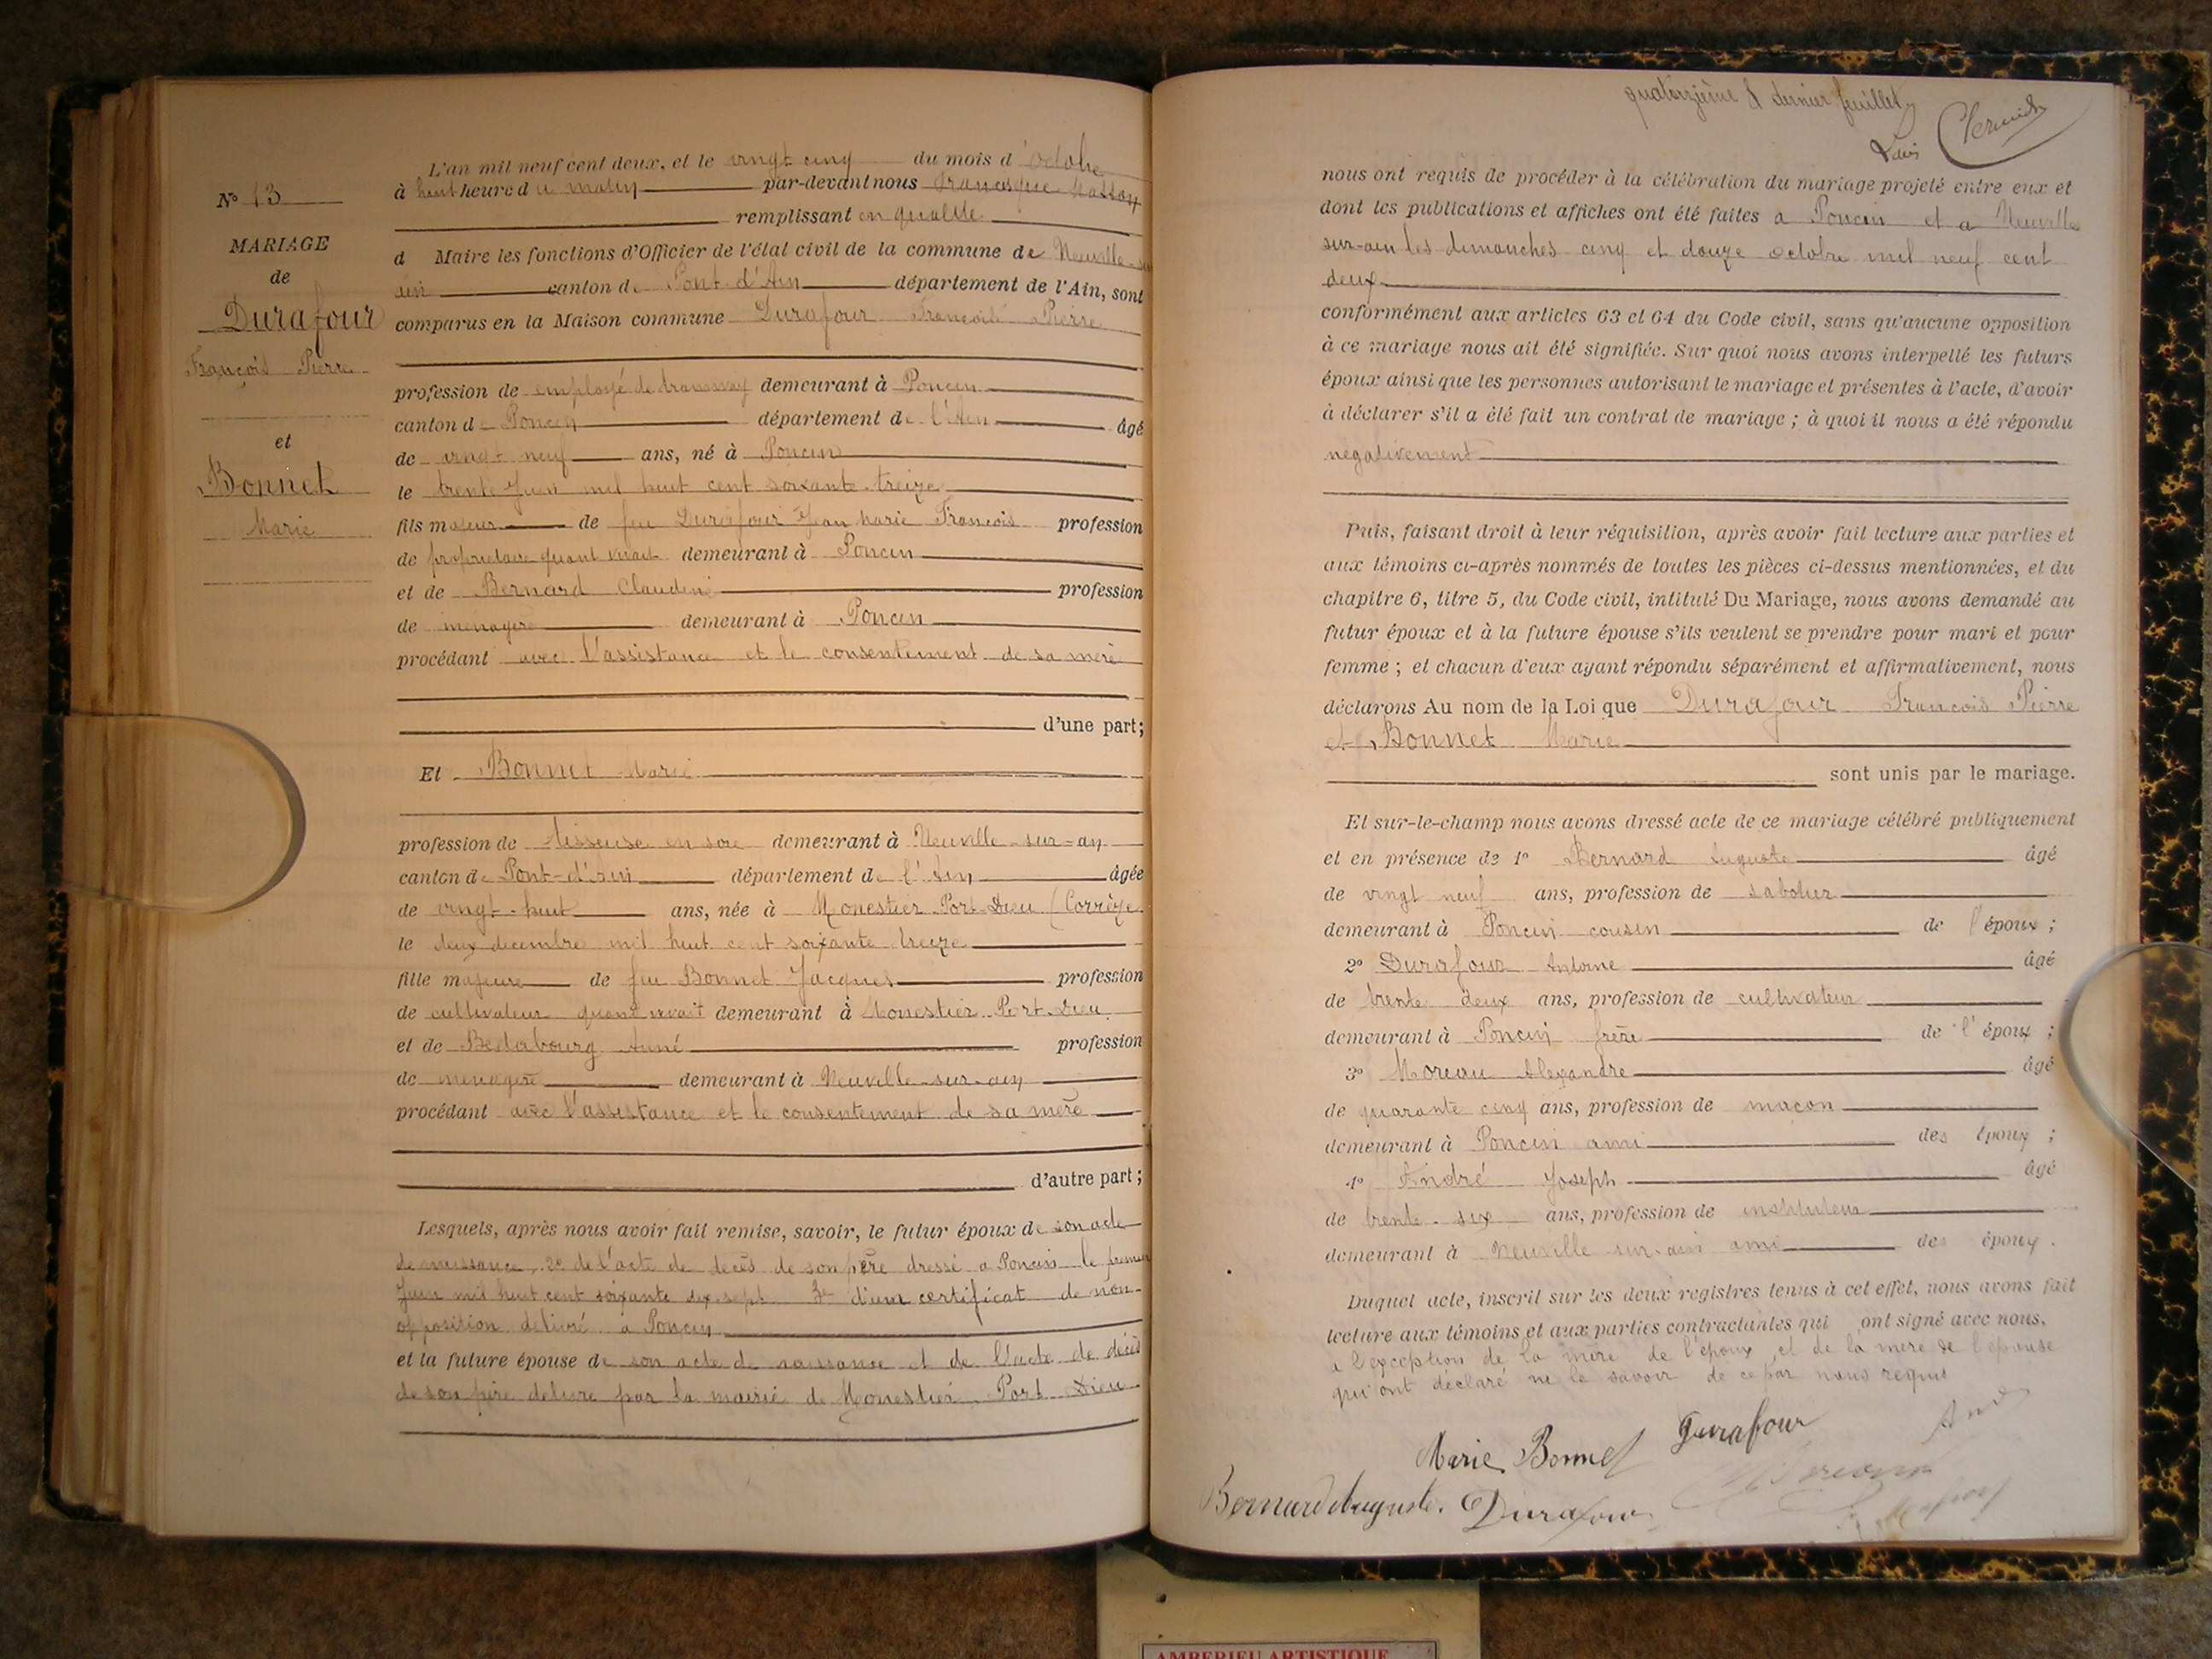 N° 13
MARIAGE
de
Durafour
François Pierre
et
Bonnet
Marie
L'an mil neuf cent deux, et le vingt cinq du mois d'octobre
à huit heure du matin par-devant nous Francisque Masson
remplissant en qualité
d Maire les fonctions d'Officier de l'état civil de la commune de Neuville-sur
ain canton de Pont d'Ain département de l'Ain, sont
comparus en la Maison commune Durafour François Pierre
profession de employé de tramway demeurant à Poncin
canton de Poncin département de l'Ain âgé
de vingt neuf ans, né à Poncin
le trente Juin mil huit cent soixante treize
fils majeur de feu Durafour Jean Marie François profession
de propriétaire quant vivait demeurant à Poncin
et de Bernard Claudine profession
de ménagère demeurant à Poncin
procédant avec l'assistance et le consentement de sa mère
d'une part;
Et Bonnet Marie
profession de tisseuse en soie demeurant à Neuville-sur-ain
canton de Pont-d'Ain département de l'Ain âgée
de vingt-huit ans, née à Monestier Port-Dieu (Corrèze
le deux decembre mil huit cent soixante treize
fille majeure de feu Bonnet Jacques profession
de cultivateur quant vivait demeurant à Monestier Port-Dieu
et de Bedabourg Anne profession
de ménagère demeurant à Neuville-sur-ain
procédant avec l'assistance et le consentement de sa mère
d'autre part;
Lesquels, après nous avoir fait remise, savoir, le futur époux de son acte
de naissance, 2° de l'acte de décès de son père dressé a Poncin le premier
Juin mil huit cent soixante dix-sept 3° d'un certificat de non-
opposition délivré à Poncin
et la future épouse de son acte de naissance et de l'acte de décès
de son père délivré par la mairie de Monestier Port Dieu
quatorzième & dernier feuillet
nous ont requis de procéder à la célébration du mariage projeté entre eux et
dont les publications et affiches ont été faites a Poncin et a Neuville
sur-ain les dimanches cinq et douze octobre mil neuf cent
deux
conformément aux articles 63 et 64 du Code civil, sans qu'aucune opposition
à ce mariage nous ait été signifiée. Sur quoi nous avons interpellé les futurs
époux ainsi que les personnes autorisant le mariage et présentes à l'acte, d'avoir
à déclarer s'il a été fait un contrat de mariage ; à quoi il nous a été répondu
négativement
Puis, faisant droit à leur réquisition, après avoir fait lecture aux parties et
aux témoins ci-après nommés de toutes les pièces ci-dessus mentionnées, et du
chapitre 6, titre 5, du Code civil, intitulé Du Mariage, nous avons demandé au
futur époux et à la future épouse s'ils veulent se prendre pour mari et pour
femme ; et chacun d'eux ayant répondu séparément et affirmativement, nous
déclarons Au nom de la Loi que Durafour François Pierre
et Bonnet Marie
sont unis par le mariage.
Et sur-le-champ nous avons dressé acte de ce mariage célébré publiquement
et en présence de 1° Bernard Auguste âgé
de vingt neuf ans, profession de sabotier
demeurant à Poncin cousin de l'époux ;
2° Durafour Antoine âgé
de trente deux ans, profession de cultivateur
demeurant à Poncin frère de l'époux ;
3° Moreau Alexandre âgé
de quarante cinq ans, profession de maçon
demeurant à Poncin ami des époux ;
4° André Joseph âgé
de trente-six ans, profession de instituteur
demeurant à Neuville sur-ain ami des époux.
Duquel acte, inscrit sur les deux registres tenus à cet effet, nous avons fait
lecture aux témoins et aux parties contractantes qui ont signé avec nous.
a l'exception de la mère de l'époux et de la mère de l'épouse
qui ont déclaré ne le savoir de ce par nous requis
Marie Bonnet Durafour
Bernard Auguste. Durafour
AMBERIEU ARTISTIQUE